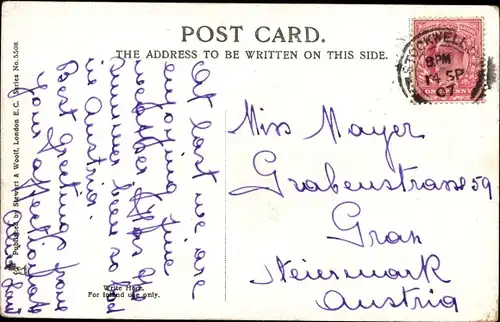 POST CARD.
THE ADDRESS TO BE WRITTEN ON THIS SIDE.
STOCKWELL
8 PM
14 SP
07
ONE PENNY
At last we are
enjoying fine
weather. Has your
summer been so bad
in Austria.
Best greetings from
your affectionate
Miss Mayer
Grabenstrasse 59
Graz
Steiermark
Austria
Write Here.
For Inland use only.
Published by Stewart & Woolf, London E.C. Series No. 5508